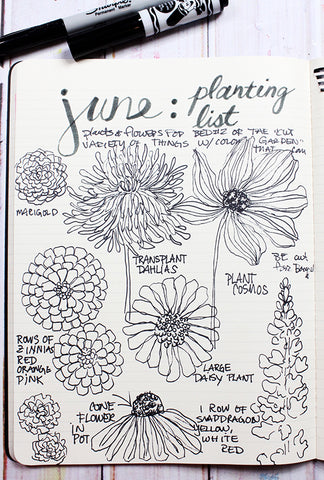 Sharpie
Permanent Marker
june: planting
list
plants & flowers for BED #2 OF THE "CUT
VARIETY OF THINGS W/ COLOR "GARDEN"
THAT
MARIGOLD
TRANSPLANT
DAHLIAS
PLANT
COSMOS
BE
ROWS OF
ZINNIAS
RED
ORANGE
PINK
LARGE
DAISY PLANT
CONE
FLOWER
IN
POT
1 ROW OF
SNAPDRAGON,
YELLOW,
WHITE
RED